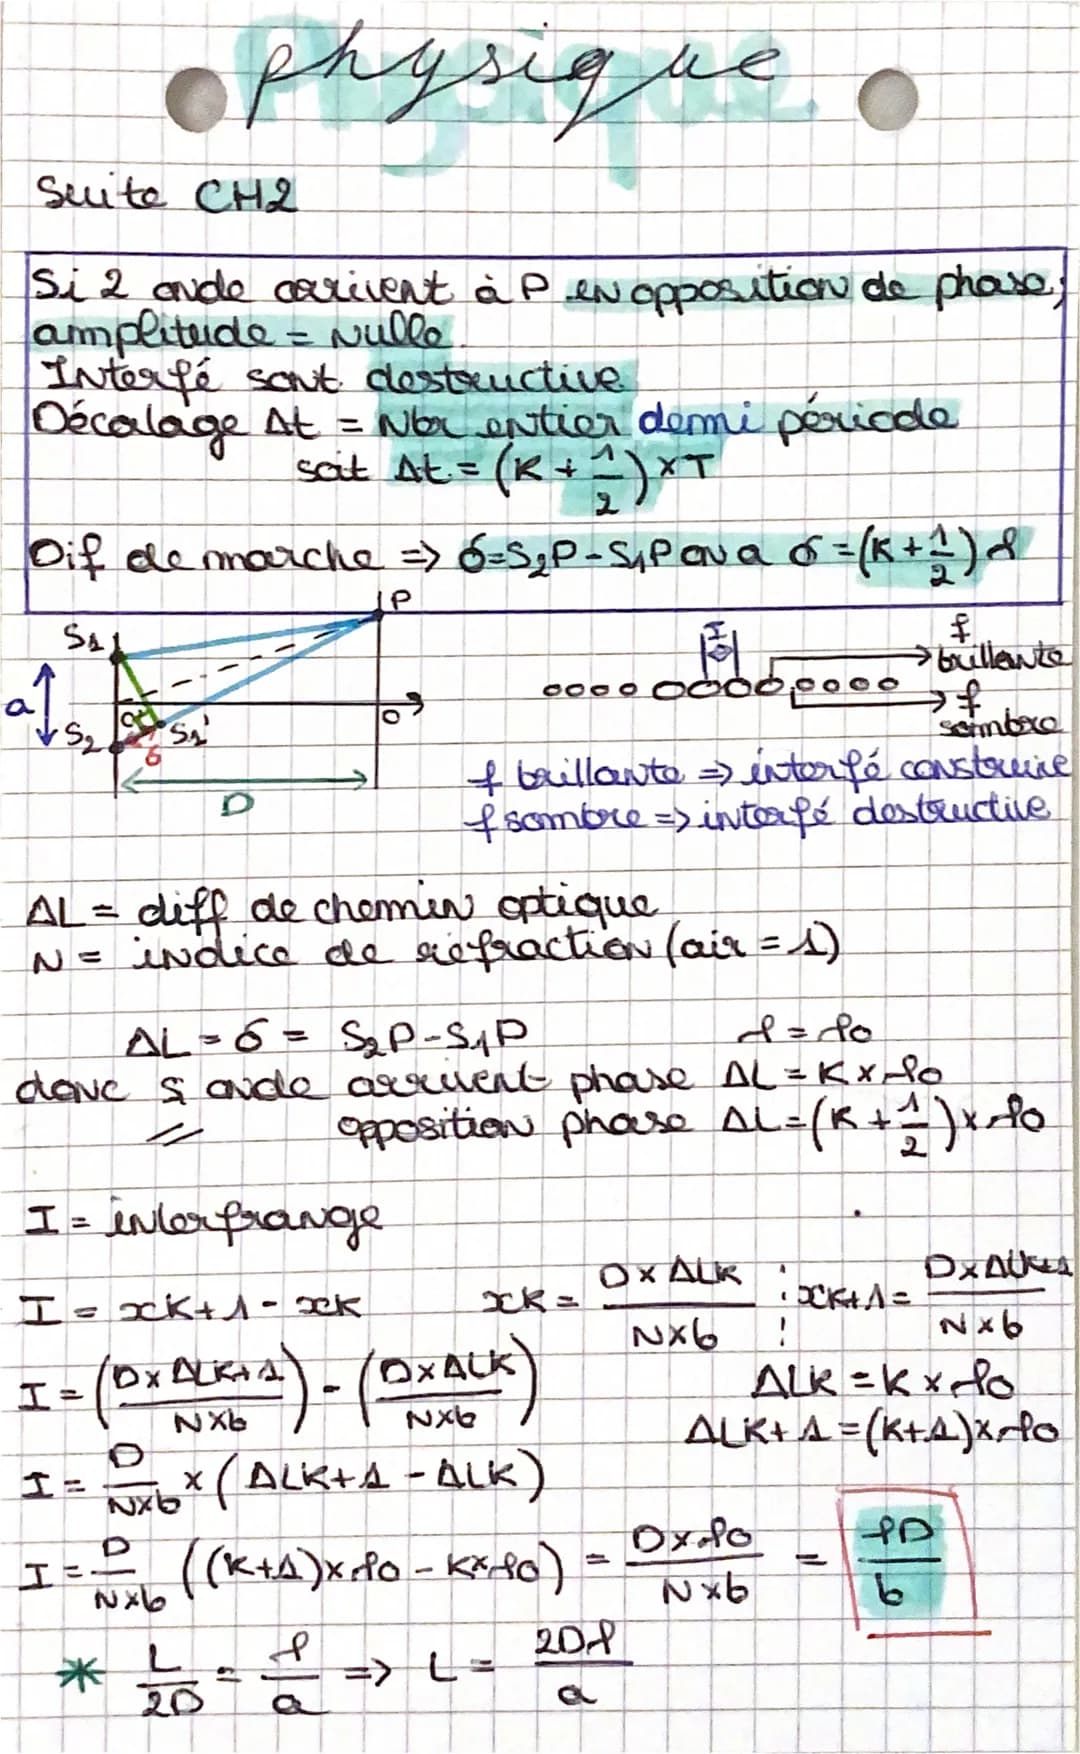 Physique
Suite CH2
Si 2 onde arrivent à P en opposition de phase,
amplitude = Nulle.
Interfé sont destructive
Décalage Δt = Nbr entier demi période
soit Δt = (K + 1/2) × T
Dif de marche => δ=S₂P-S₁P on a δ=(K+1/2)λ
P
S1
a
S2
α
S1'
δ
O
D
I
f
brillante
f
sombre
f brillante => interfé construire
f sombre => interfé destructive
ΔL = diff de chemin optique
N = indice de réfraction (air = 1)
ΔL = δ = S₂P-S₁P λ = λ0
donc si onde arrivent phase ΔL = K×λ0
// opposition phase ΔL=(K+1/2)×λ0
I = interfrange
I = xK+1 - xK xK = D×ΔLK / N×b ; xK+1 = D×ΔLK+1 / N×b
I = (D×ΔLK+1 / N×b) - (D×ΔLK / N×b) ΔLK = K×λ0
ΔLK+1 = (K+1)×λ0
I = D / N×b × (ΔLK+1 - ΔLK)
I = D / N×b ((K+1)×λ0 - K×λ0) = D×λ0 / N×b = λD / b
* L/2D = λ/a => L = 2Dλ / a